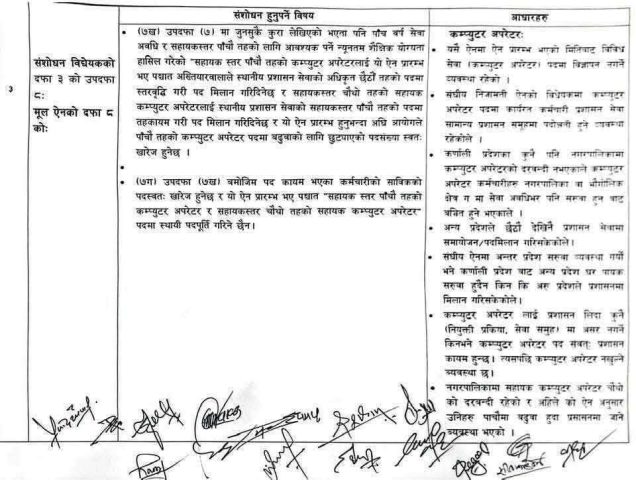 संशोधन हुनुपर्ने विषय
आधारहरु
३
संशोधन विधेयकको
दफा ३ को उपदफा
८:
मूल ऐनको दफा ८
को:
• (७ख) उपदफा (७) मा जुनसुकै कुरा लेखिएको भएता पनि पाँच बर्ष सेवा
अवधि र सहायकस्तर पाँचौ तहको लागि आवश्यक पर्ने न्यूनतम शैक्षिक योग्यता
हासिल गरेको "सहायक स्तर पाँचौं तहको कम्प्युटर अपरेटरलाई यो ऐन प्रारम्भ
भए पश्चात अख्तियारवालाले स्थानीय प्रशासन सेवाको अधिकृत छैटौं तहको पदमा
स्तरवृद्धि गरी पद मिलान गरिदिनेछ र सहायकस्तर चौथो तहको सहायक
कम्प्युटर अपरेटरलाई स्थानीय प्रशासन सेवाको सहायकस्तर पाँचौं तहको पदमा
तहकायम गरी पद मिलान गरिदिनेछ र यो ऐन प्रारम्भ हुनुभन्दा अघि आयोगले
पाँचौ तहको कम्प्युटर अपरेटर पदमा बढुवाको लागि छुटयाएको पदसंख्या स्वतः
खारेज हुनेछ ।
•
• (७ग) उपदफा (७ख) बमोजिम पद कायम भएका कर्मचारीको साविकको
पदस्वतः खारेज हुनेछ र यो ऐन प्रारम्भ भए पश्चात "सहायक स्तर पाँचौं तहको
कम्प्युटर अपरेटर र सहायकस्तर चौथो तहको सहायक कम्प्युटर अपरेटर"
पदमा स्थायी पदपूर्ति गरिने छैन।
कम्प्युटर अपरेटर:
• यसै ऐनमा ऐन प्रारम्भ भएको मितिबाट विविध
सेवा (कम्प्युटर अपरेटर) पदमा विज्ञापन नगर्ने
व्यवस्था रहेको ।
• संघीय निजामती ऐनको विधेयकमा कम्प्युटर
अपरेटर पदमा कार्यरत कर्मचारी प्रशासन सेवा
सामान्य प्रशासन समूहमा पदोन्नती हुने व्यवस्था
रहेकोले ।
• कर्णाली प्रदेशका कुनै पनि नगरपालिकामा
कम्प्युटर अपरेटरको दरबन्दी नभएकाले कम्प्युटर
अपरेटर कर्मचारीहरु नगरपालिका वा भौगोलिक
क्षेत्र ग मा सेवा अवधिभर पनि सरुवा हुन बाट
बञ्चित हुने भएकाले ।
• अन्य प्रदेशले छैटौं देखिनै प्रशासन सेवामा
समायोजन/पदमिलान गरिसकेकोले।
• संघीय ऐनमा अन्तर प्रदेश सरुवा व्यवस्था गर्यो
भने कर्णाली प्रदेश बाट अन्य प्रदेश घर पायक
सरुवा हुदैन किन कि अरु प्रदेशले प्रशासनमा
मिलान गरिसकेकोले।
• कम्प्युटर अपरेटर लाई प्रशासन लिदा कुनै
(नियुक्ती प्रकिया, सेवा समुह) मा असर नगर्ने
किनभने कम्प्युटर अपरेटर पद संवतः प्रशासन
कायम हुन्छ। त्यसपछि कम्प्युटर अपरेटर नखुल्ने
व्यवस्था छ।
• नगरपालिकामा सहायक कम्प्युटर अपरेटर चौथो
को दरवन्दी रहेको र अहिले को ऐन अनुसार
उनिहरु पाचौमा बढुवा हुदा प्रसासनमा जाने
व्यवस्था भएको ।